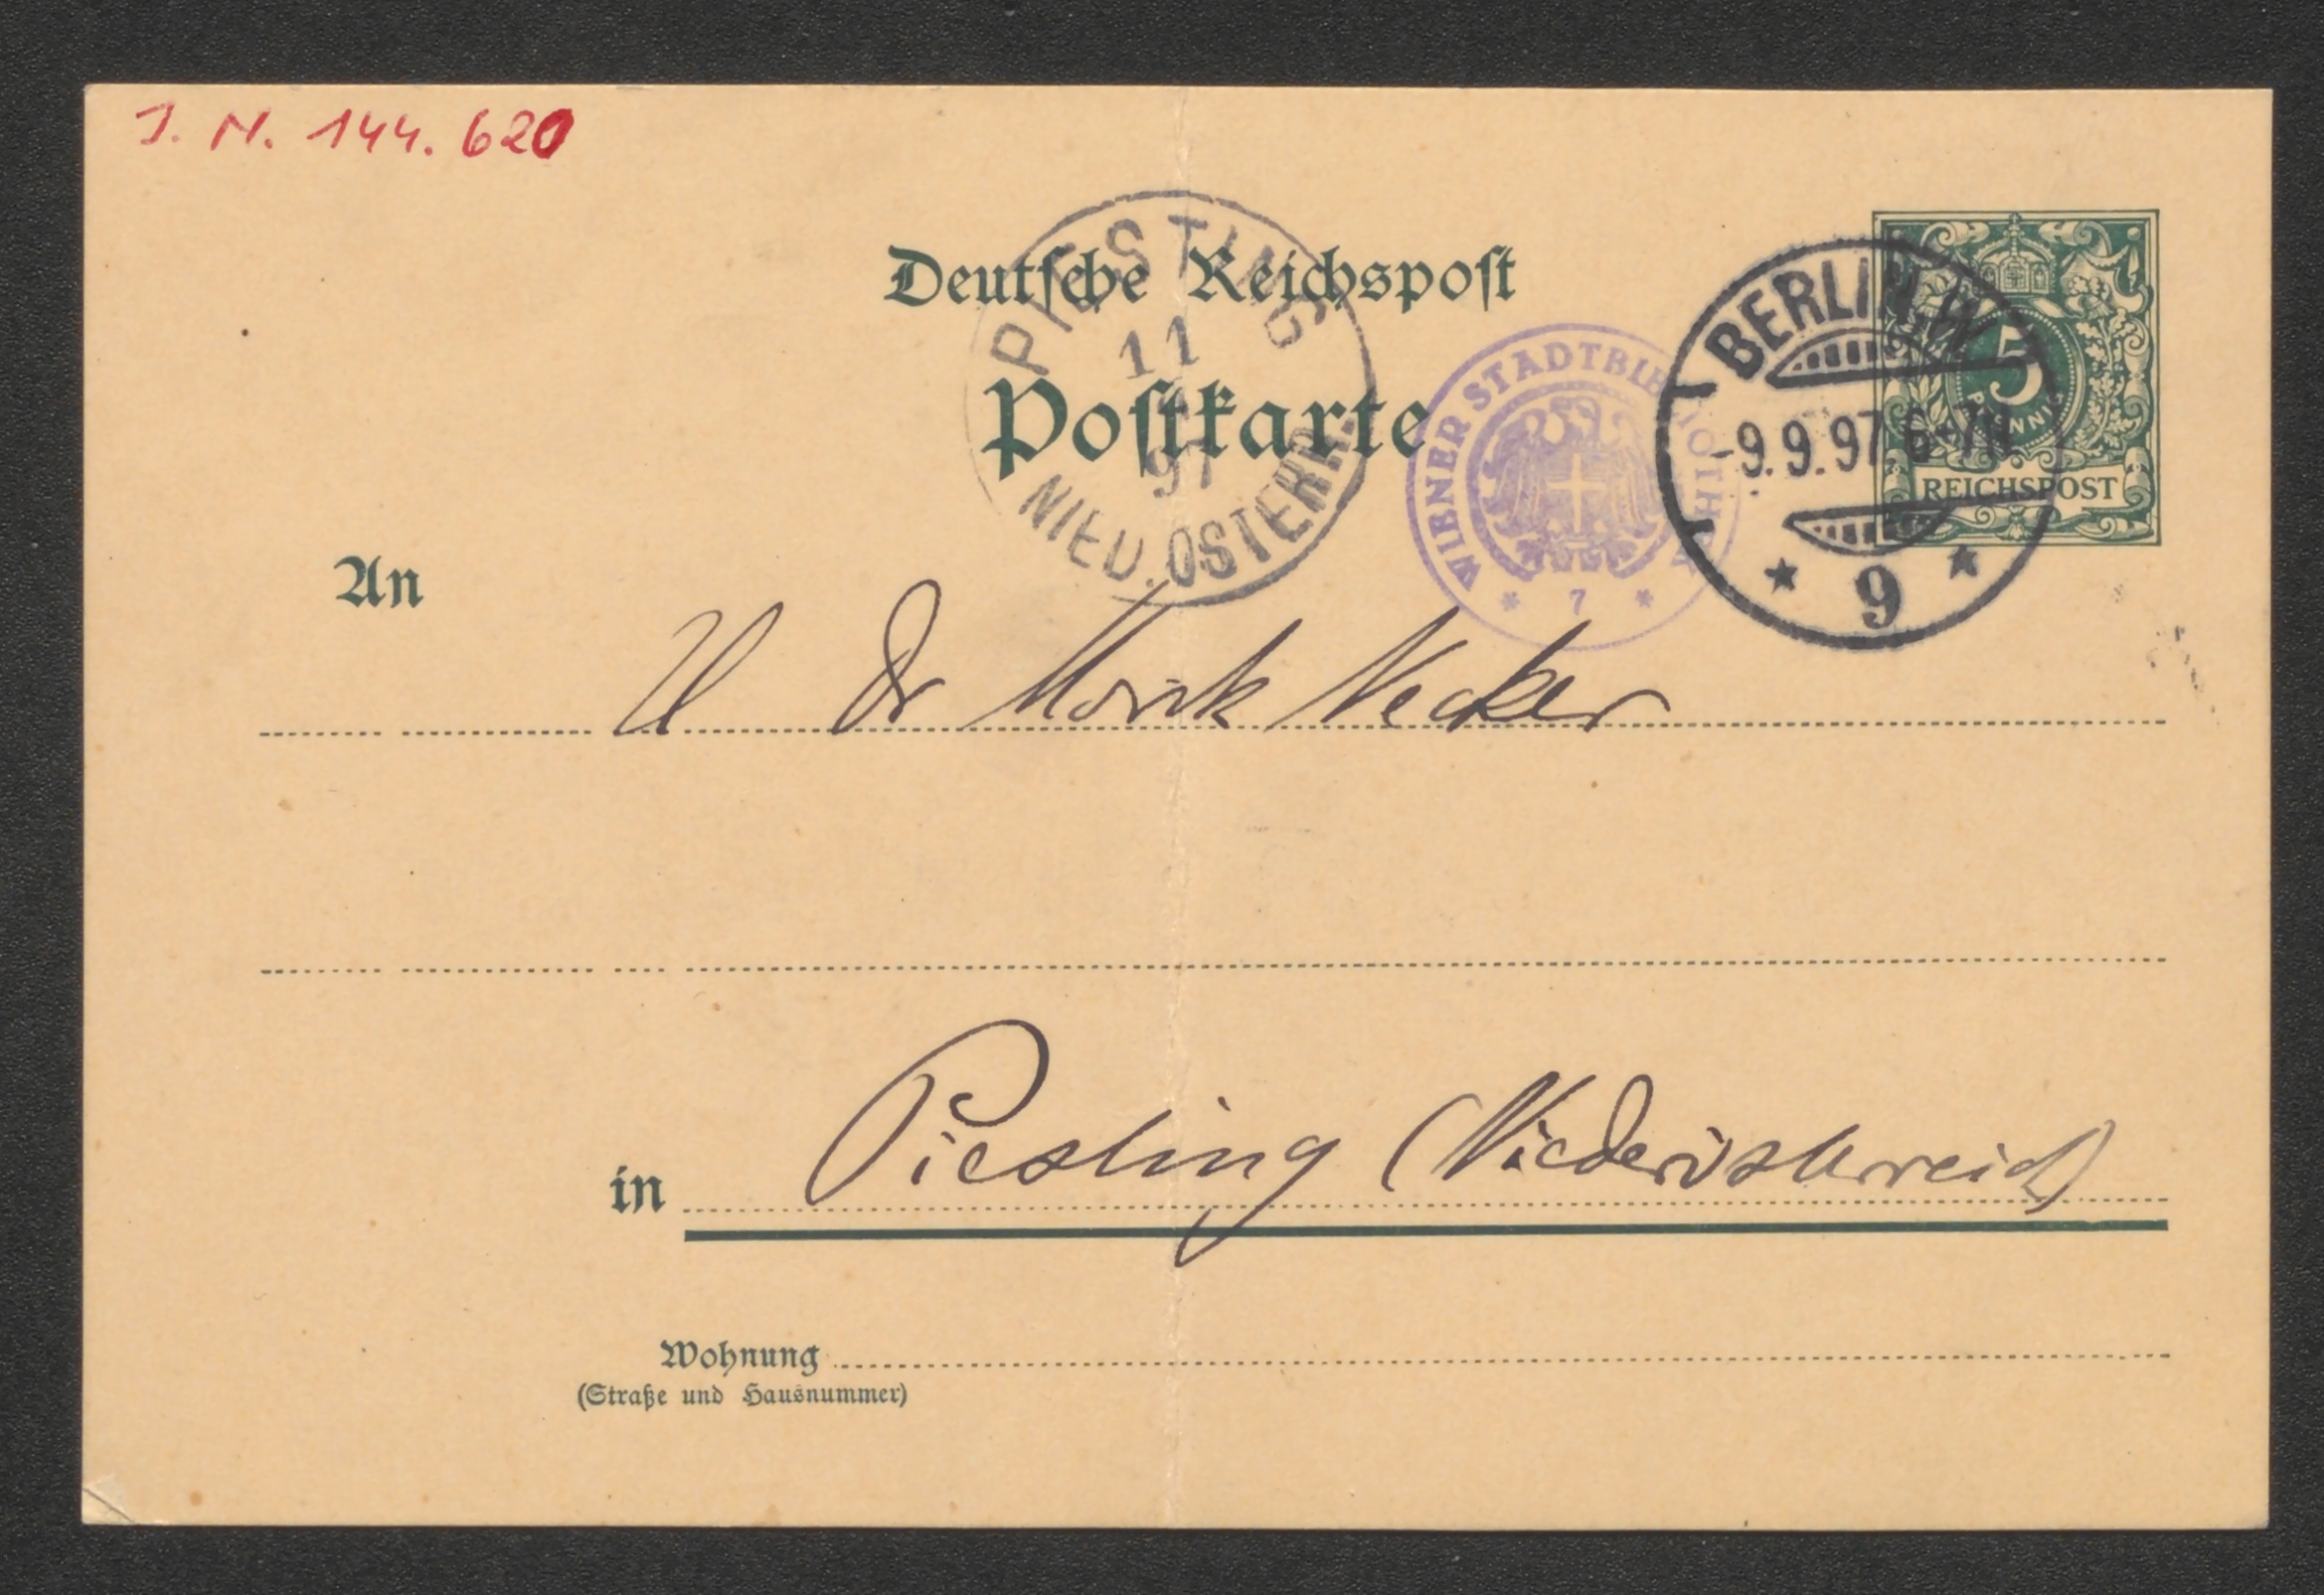 J. N. 144.620
Deutsche Reichspost
Postkarte
PIESTING
11
9
97
NIED. OSTERR.
WIENER STADTBIBLIOTHEK
* 7 *
BERLIN.W
-9.9.97 6-7N
* 9 *
5
PFENNIG
REICHSPOST
An
H Dr Moritz Necker
in Piesting (Niederösterreich)
Wohnung
(Straße und Hausnummer)